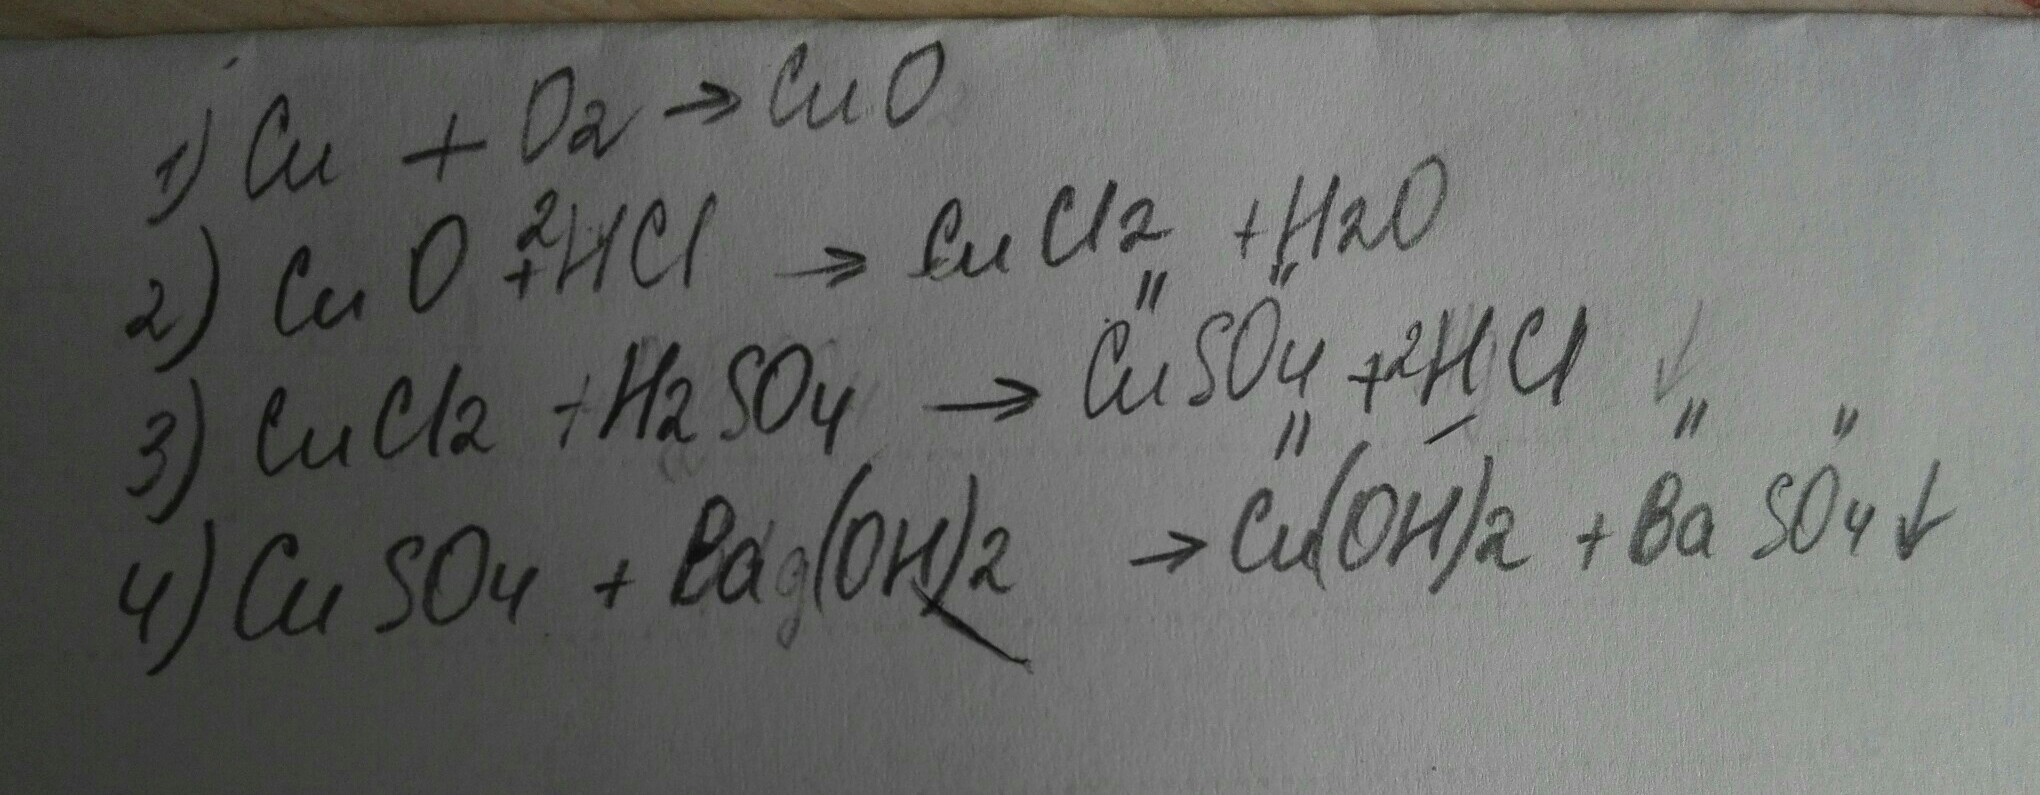 1) Cu + O2 → CuO
2) CuO + 2HCl → CuCl2 + H2O
3) CuCl2 + H2SO4 → CuSO4 + 2HCl ↓
4) CuSO4 + Ba(OH)2 → Cu(OH)2 + BaSO4↓